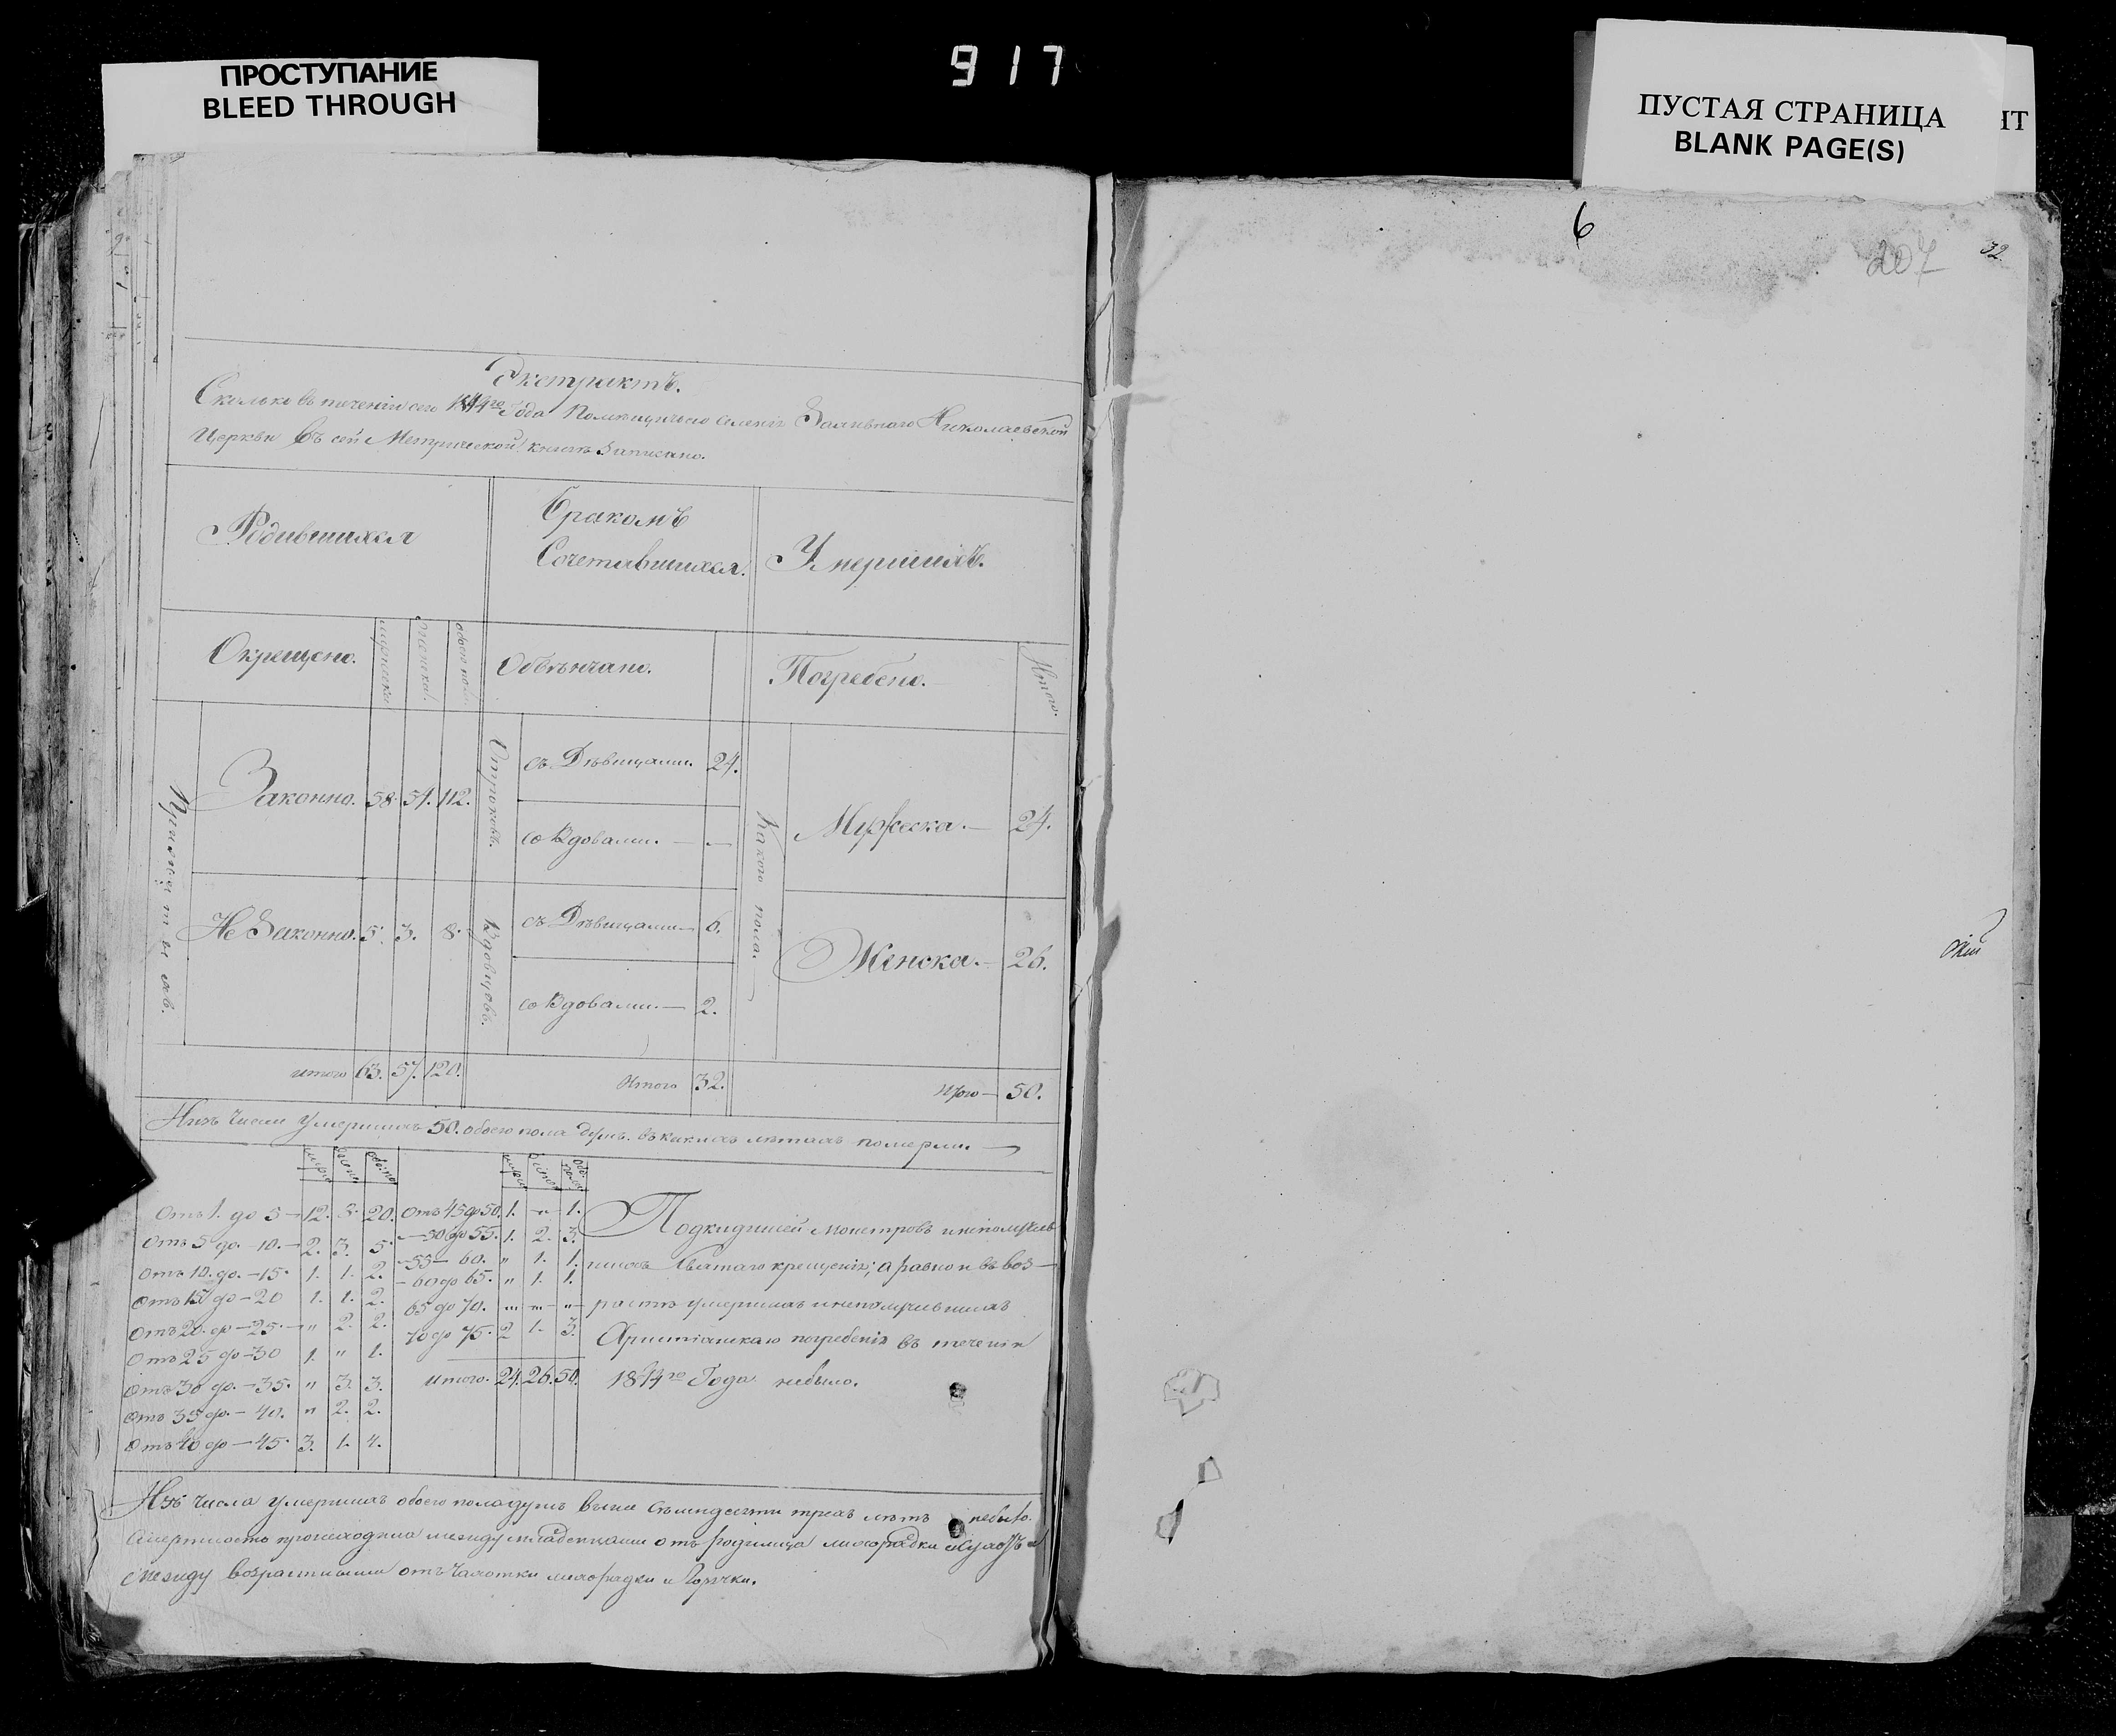 ПРОСТУПАНИЕ
BLEED THROUGH
917
ПУСТАЯ СТРАНИЦА
BLANK PAGE(S)
НТ
6
207
32
Экстрактъ.
Сколько въ теченіи сего 1844го Года Помѣщичьяго селенія Заливнаго Николаевской
Церкви Въ сей Метрической книгѣ Записано.
Родившихся
Бракомъ
Сочетавшихся.
Умершихъ.
Окрещено.
мужеска
женска
обоего пола
Обвѣнчано.
Погребено.
Итого.
Законно. 58. 54. 112.
Отроковъ.
съ Дѣвицами. 24.
со Вдовами. — —
Какого пола.
Мужеска. — 24.
Не Законно. 5. 3. 8.
Вдовцовъ.
съ Дѣвицами — 6.
со Вдовами. — 2.
Женска. — 26.
итого 63. 57. 120.
Итого 32.
Итого — 50.
Изъ Числа Умершихъ 50. обоего пола душъ. въ какихъ лѣтахъ померли.
Отъ 1. до 5 — 12. 8. 20.
Отъ 5 до. — 10. — 2. 3. 5.
Отъ 10. до. — 15. 1. 1. 2.
Отъ 15 до — 20 1. 1. 2.
Отъ 20. до — 25. — " 2. 2.
Отъ 25 до — 30 1. " 1.
Отъ 30 до. — 35. " 3. 3.
Отъ 35 до. — 40. " 2. 2.
Отъ 40 до — 45. 3. 1. 4.
Отъ 45 до 50. 1. " 1.
— 50 до 55. 1. 2. 3.
— 55 — 60. " 1. 1.
— 60 до 65. " 1. 1.
65 до 70. " " "
70 до 75. 2 1. 3.
итого. 24. 26. 50.
Подкидышей монстровъ и неполучив
шихъ Святаго крещенія; а равно и въ воз—
растѣ умершихъ и неполучившихъ
Христіанскаго погребенія въ теченіи
1844го Года небыло.
Изъ числа умершихъ обоего пола душъ выше Съмидесяти трехъ лѣтъ небыло.
Смертность происходила между младенцами отъ родимца лихорадки и
между возрастными отъ Чахотки лихорадки и Горячки.